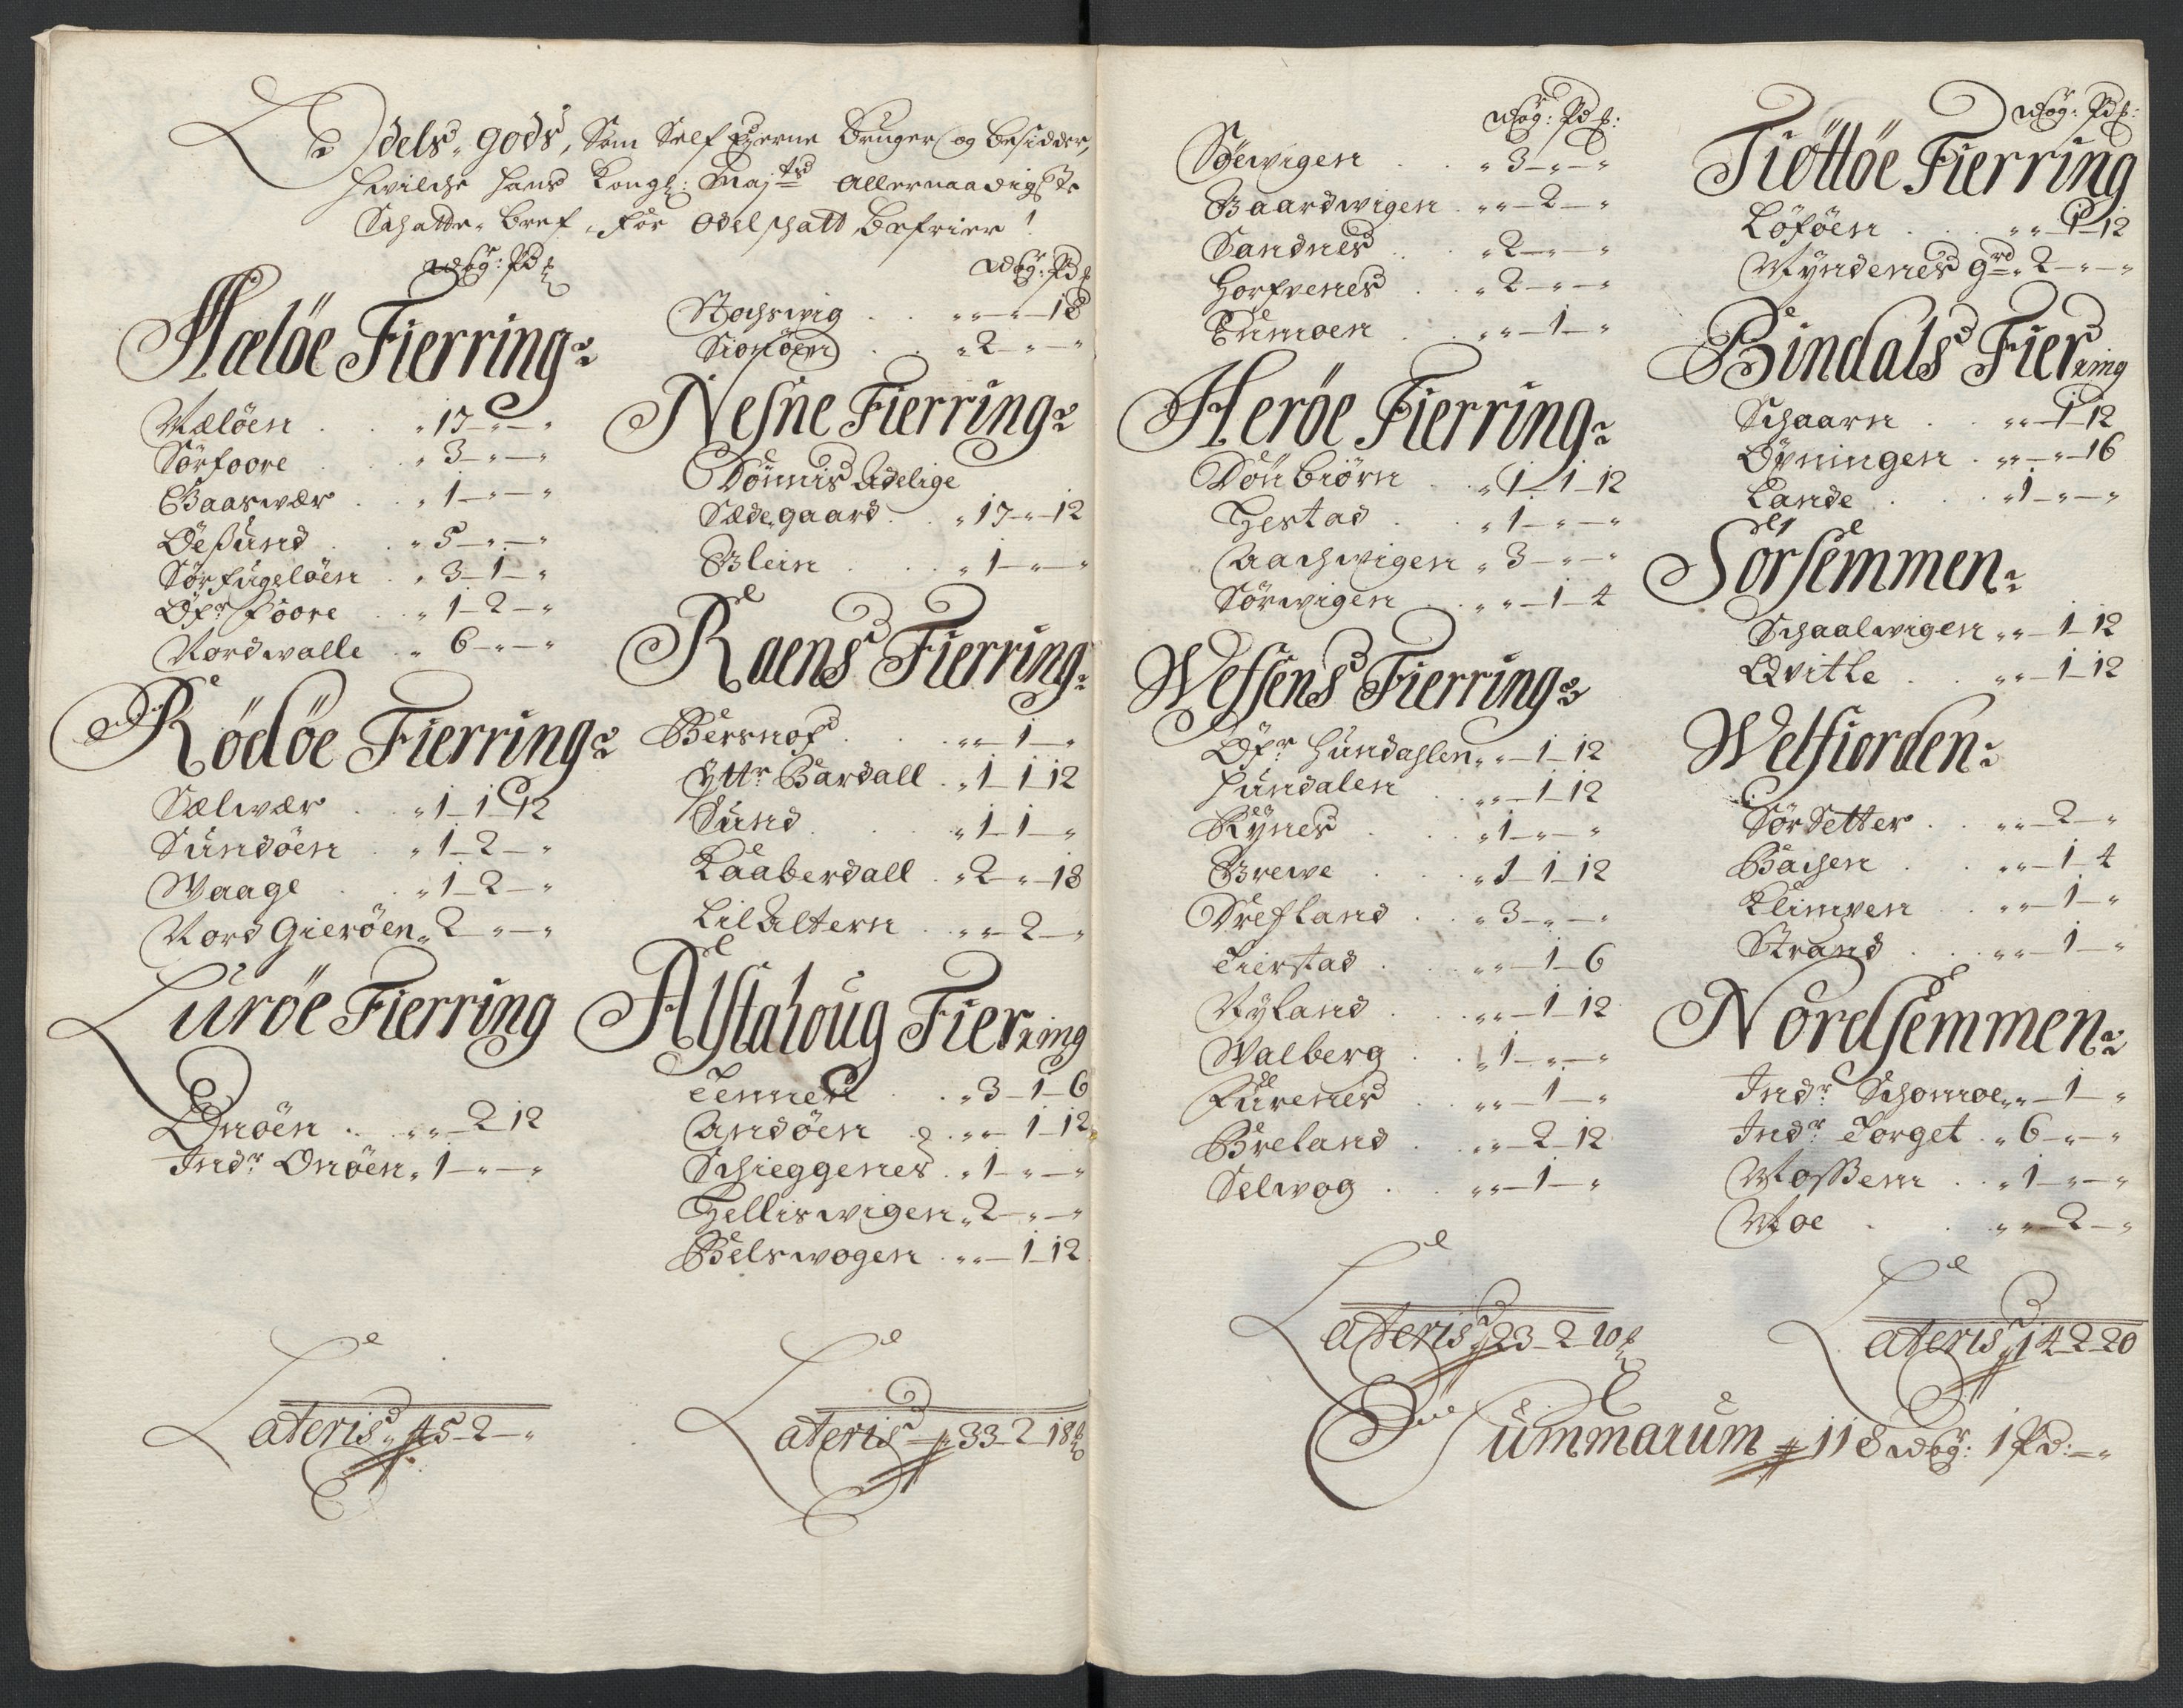 Odels-gods, Som Self Eyerne Bruger og besidder,
hvilche hans Kongl: Maj:ts allernaadigste
Schatte-bref for Odel schatt befrier!
Wog: Pd
Hæløe Fierring
Mæløen . . „ 17 - „ - „
Sørfoore . . „ 3 - „ - „
Baaswær . . „ 1 - „ - „
Øessund . . „ 5 - „ - „
Sørfugeløen . „ 3 - 1 - „
Øfr Foore . . „ 1 - 2 - „
Nordwalle . „ 6 - „ - „
Rödöe Fierring
Sælwær . . „ 1 - 1 - 12
Sundøen . „ 1 - 2 - „
Waage . . „ 1 - 2 - „
Nord Gierøen „ 2 - „ - „
Luröe Fierring
Onøen . . „ „ - 2 12
Indr Onøen „ 1 - „ - „
Lateris „ 45 - 2 - „
Wog: Pd
Stochswig . . „ „ - „ - 18
Sionøen . . „ 2 - „ - „
Nesne Fierring
Dønnis Adelige
Sædegaard . . „ 17 - „ - 12
Blein . . „ 1 - „ - „
Raens Fierring
Bersnof . . „ „ - 1 - „
Yttr Bardall . „ 1 - 1 - 12
Sund . . „ 1 - 1 - „
Kaaberdall . „ 2 - „ - 18
Lil Altern . . „ „ - 2 - „
Alstahoug Fierring
Tennen . . „ 3 - 1 - 6
Andøen . . „ „ - 1 - 12
Schieggenes . „ 1 - „ - „
Hellisvigen „ 2 - „ - „
Belswogen . „ „ - 1 - 12
Lateris „ 33 - 2 - 18
Wog: Pd
Søewigen . . „ 3 - „ - „
Baardwigen . „ „ - 2 - „
Sandnes . . „ 2 - „ - „
Horfvenes . „ 2 - „ - „
Tumoen . . „ „ - 1 - „
Heröe Fierring
Døn biörn . „ 1 - 1 - 12
Hestad . . „ 1 - „ - „
Aachwigen „ 3 - „ - „
Sørwigen . . „ „ - 1 - 4
Wefsens Fierring
Øfr Hundahlen „ „ - 1 - 12
Hundalen . „ „ - 1 - 12
Rynes . . „ 1 - „ - „
Brewe . . „ 1 - 1 - 12
Drefland . . „ 3 - „ - „
Tierstad . . „ „ - 1 - 6
Ryland . . „ „ - 1 - 12
Walberg . . „ 1 - „ - „
Furenes . . „ „ - 1 - „
Breland . . „ „ - 2 - 12
Selwog . . „ „ - 1 - „
Lateris „ 23 - 2 - 10
Wog: Pd
Tiöttöe Fierring
Løføen . . „ „ - 1 - 12
Myndenes grd „ 2 - „ - „
Bindals Fierring
Schaarn . . „ „ - 1 - 12
Øpningen . „ „ - „ - 16
Lande . . „ 1 - „ - „
Sörsemmen
Schaalwigen „ „ - 1 - 12
Qvitle . . „ „ - 1 - 12
Welfiorden
Sør Setter . . „ „ - 2 - „
Bachen . . „ „ - 1 - 4
Klimpen . . „ „ - 1 - „
Strand . . „ „ - 1 - „
Nordsemmen
Indr Schomoe „ „ - 1 - „
Indr Torget . „ 6 - „ - „
Mossem . . „ 1 - „ - „
Moe . . „ „ - 2 - „
Lateris „ 14 - 2 - 20
Summarum 118 Wog: 1 Pd: - „